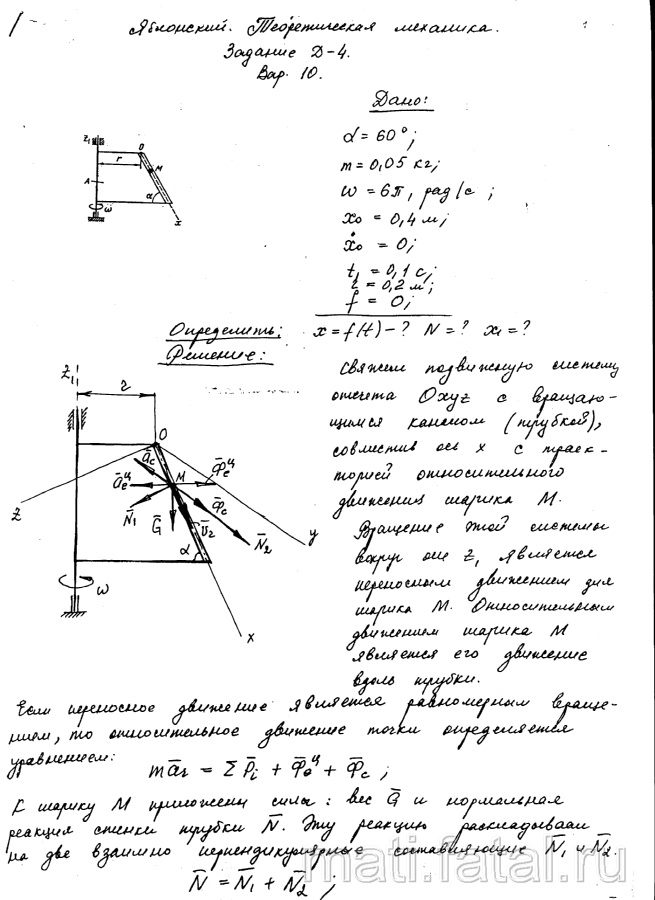 1
Яблонский. Теоретическая механика.
Задание Д-4.
Вар. 10.
Дано:
α = 60°;
m = 0,05 кг;
ω = 6π, рад/с;
x₀ = 0,4 м;
ẋ₀ = 0;
t₁ = 0,1 с;
r = 0,2 м;
f = 0;
z₁ O r M A α ω x
Определить: x = f(t) - ? N = ? x₁ = ?
Решение:
Свяжем подвижную систему
отсчета Oxyz с вращаю-
щимся каналом (трубкой),
совместив ось x с траек-
торией относительного
движения шарика M.
Вращение этой системы
вокруг оси z₁ является
переносным движением для
шарика M. Относительным
движением шарика M
является его движение
вдоль трубки.
z₁
r
O
āc M Φ̄eᵘ
āeᵘ
Φ̄c
N̄₁ Ḡ v̄r N̄₂
z y
α
ω
x
Если переносное движение является равномерным враще-
нием, то относительное движение точки определяется
уравнением:
mār = Σ P̄i + Φ̄eᵘ + Φ̄c ;
К шарику M приложены силы: вес Ḡ и нормальная
реакция стенки трубки N̄. Эту реакцию раскладываем
на две взаимно перпендикулярные составляющие N̄₁ и N̄₂
N̄ = N̄₁ + N̄₂ ;
mati.fatal.ru